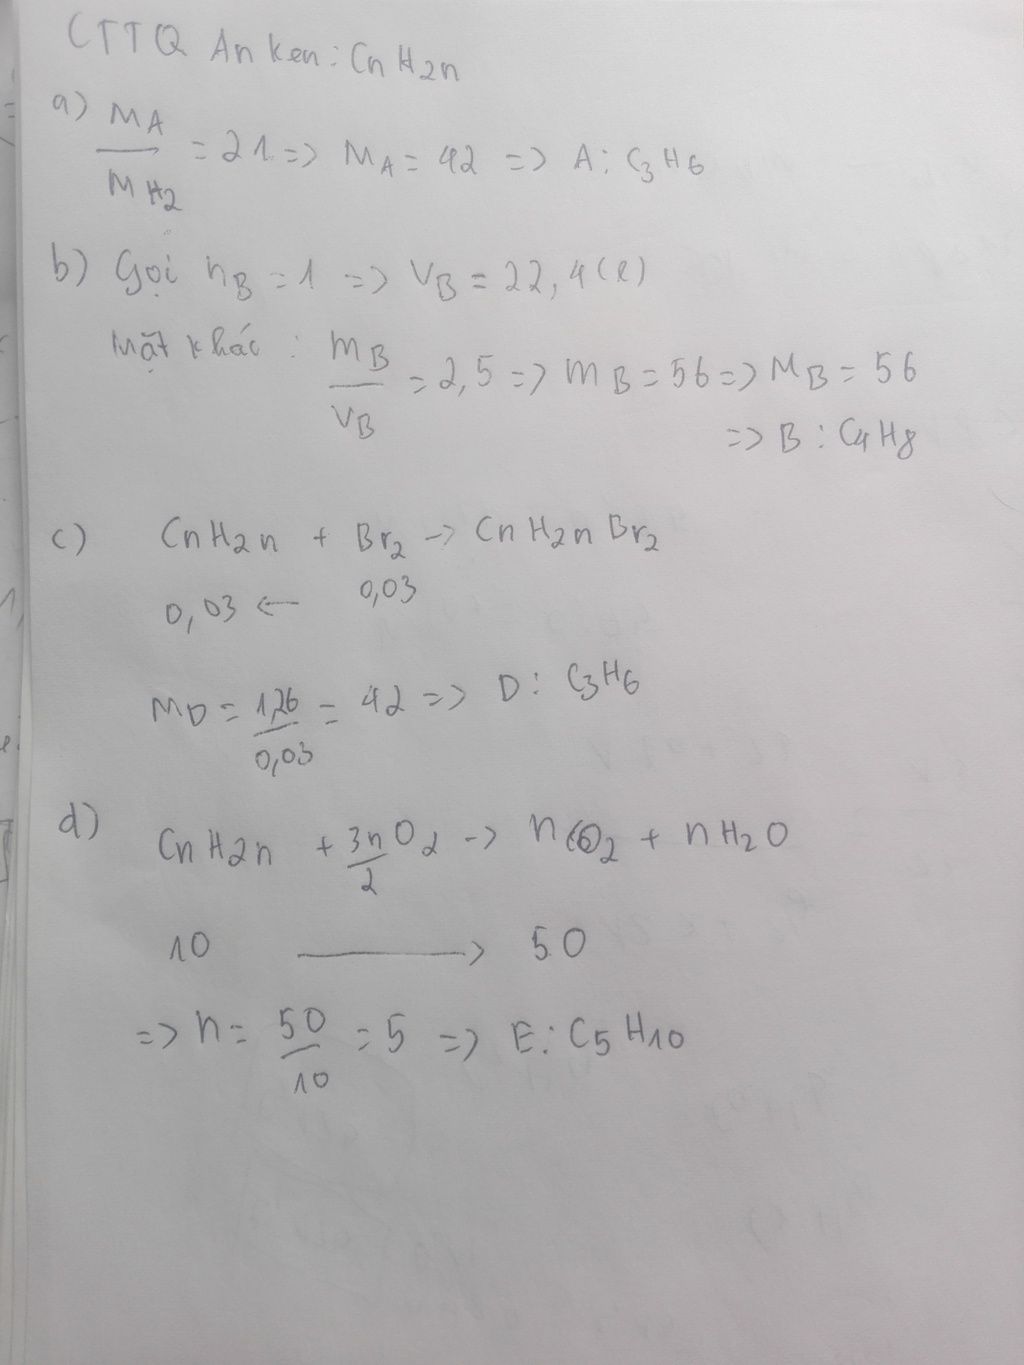 CTTQ Anken: CnH2n
a) MA/MH2 = 21 => MA = 42 => A: C3H6
b) Gọi nB = 1 => VB = 22,4(l)
Mặt khác: mB/VB = 2,5 => mB = 56 => MB = 56
=> B: C4H8
c) CnH2n + Br2 -> CnH2nBr2
0,03 <- 0,03
MD = 1,26/0,03 = 42 => D: C3H6
d) CnH2n + 3n/2 O2 -> nCO2 + nH2O
10 -> 50
=> n = 50/10 = 5 => E: C5H10